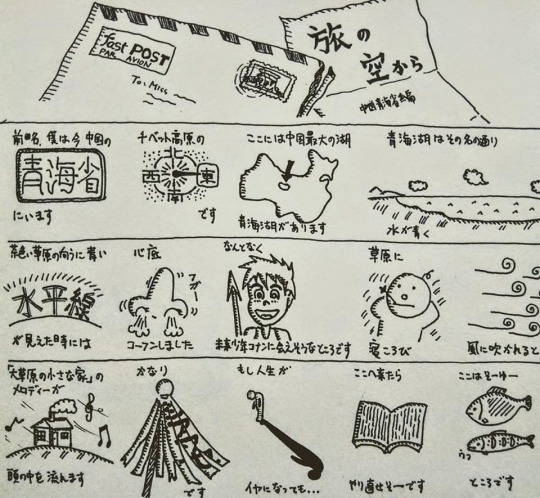 fast POST
PAR AVION
To: Miss
旅の
空から
中国青海省編
前略、僕は今 中国の
青海省
にいます
チベット高原の
北
西
東
南
です
ここには中国最大の湖
青海湖があります
青海湖はその名の通り
水が青く
茶色い草原の向うに青い
水平線
が見えた時には
心底
フガー
コーフンしました
なんとなく
未来少年コナンに会えそうなところです
草原に
寝ころび
風に吹かれると
「大草原の小さな家」の
メロディーが
頭の中を流れます
かなり
です
もし人生が
イヤになっても…
ここへ来たら
やり直せそーです
ここはそーゆー
ところです